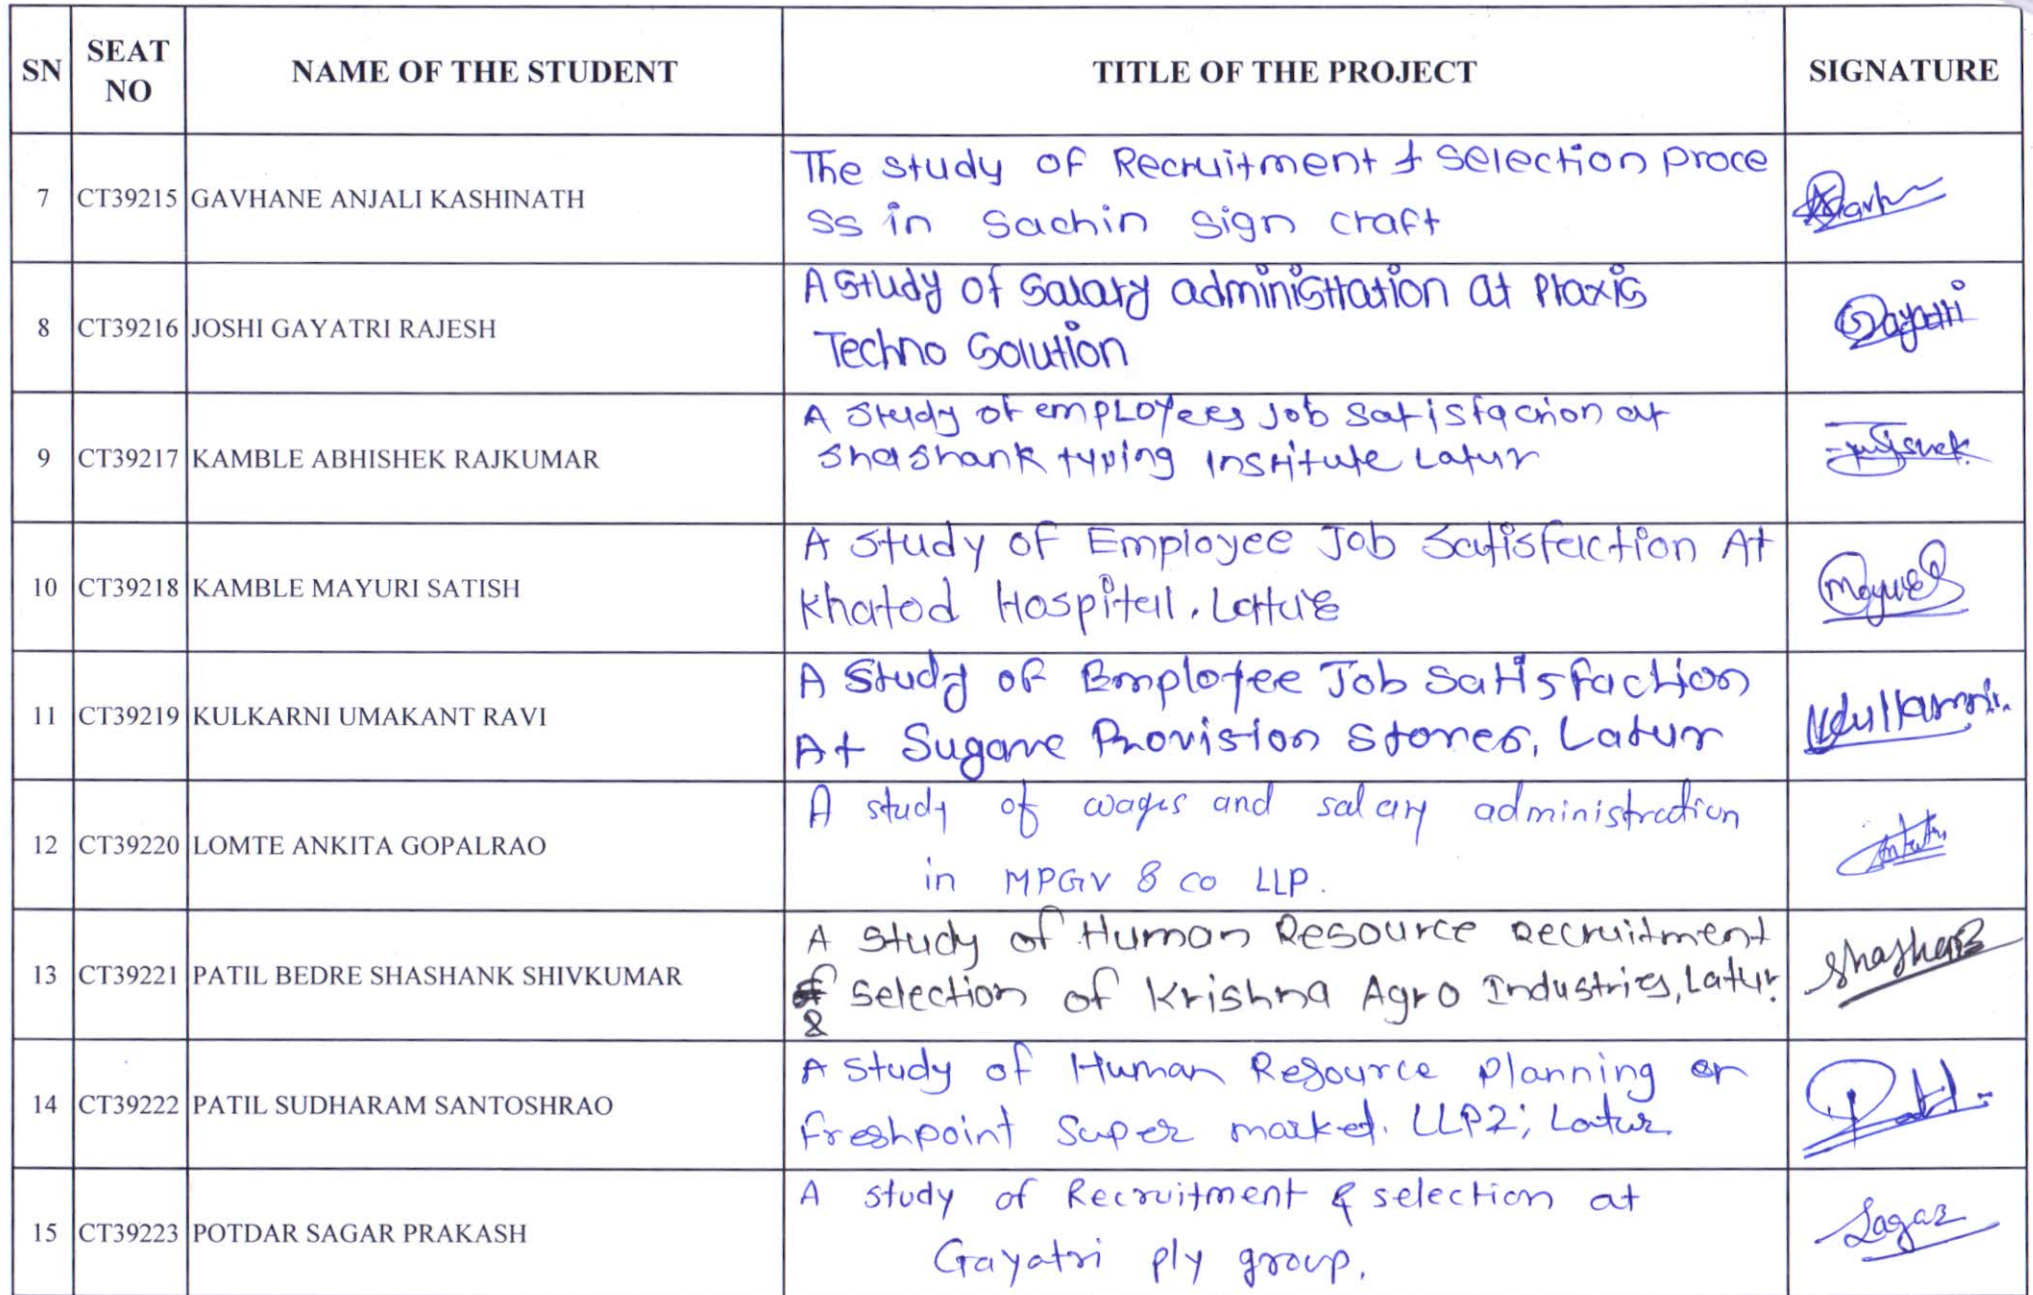 SN SEAT NO NAME OF THE STUDENT TITLE OF THE PROJECT SIGNATURE
7 CT39215 GAVHANE ANJALI KASHINATH The study of Recruitment & Selection Proce
ss in Sachin Sign craft
8 CT39216 JOSHI GAYATRI RAJESH A Study of Salary administration at Praxis
Techno Solution Gayatri
9 CT39217 KAMBLE ABHISHEK RAJKUMAR A Study of employees Job satisfaction at
Shashank typing Institute Latur
10 CT39218 KAMBLE MAYURI SATISH A Study of Employee Job Satisfaction At
Khatod Hospital. Latur
11 CT39219 KULKARNI UMAKANT RAVI A Study of Employee Job Satisfaction
At Sugave Provision Stores, Latur
12 CT39220 LOMTE ANKITA GOPALRAO A study of wages and salary administration
in MPGV & CO LLP.
13 CT39221 PATIL BEDRE SHASHANK SHIVKUMAR A Study of Human Resource Recruitment
& Selection of Krishna Agro Industries, Latur.
14 CT39222 PATIL SUDHARAM SANTOSHRAO A Study of Human Resource planning on
freshpoint Super market. LLP2; Latur.
15 CT39223 POTDAR SAGAR PRAKASH A study of Recruitment & selection at
Gayatri ply group. Sagar